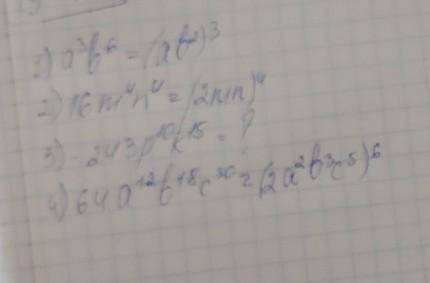 1) a³b⁶ = (ab²)³
2) 16m⁴n⁴ = (2mn)⁴
3) -243p¹⁰k¹⁵ = ?
4) 64a¹²b¹⁸c³⁰ = (2a²b³c⁵)⁶